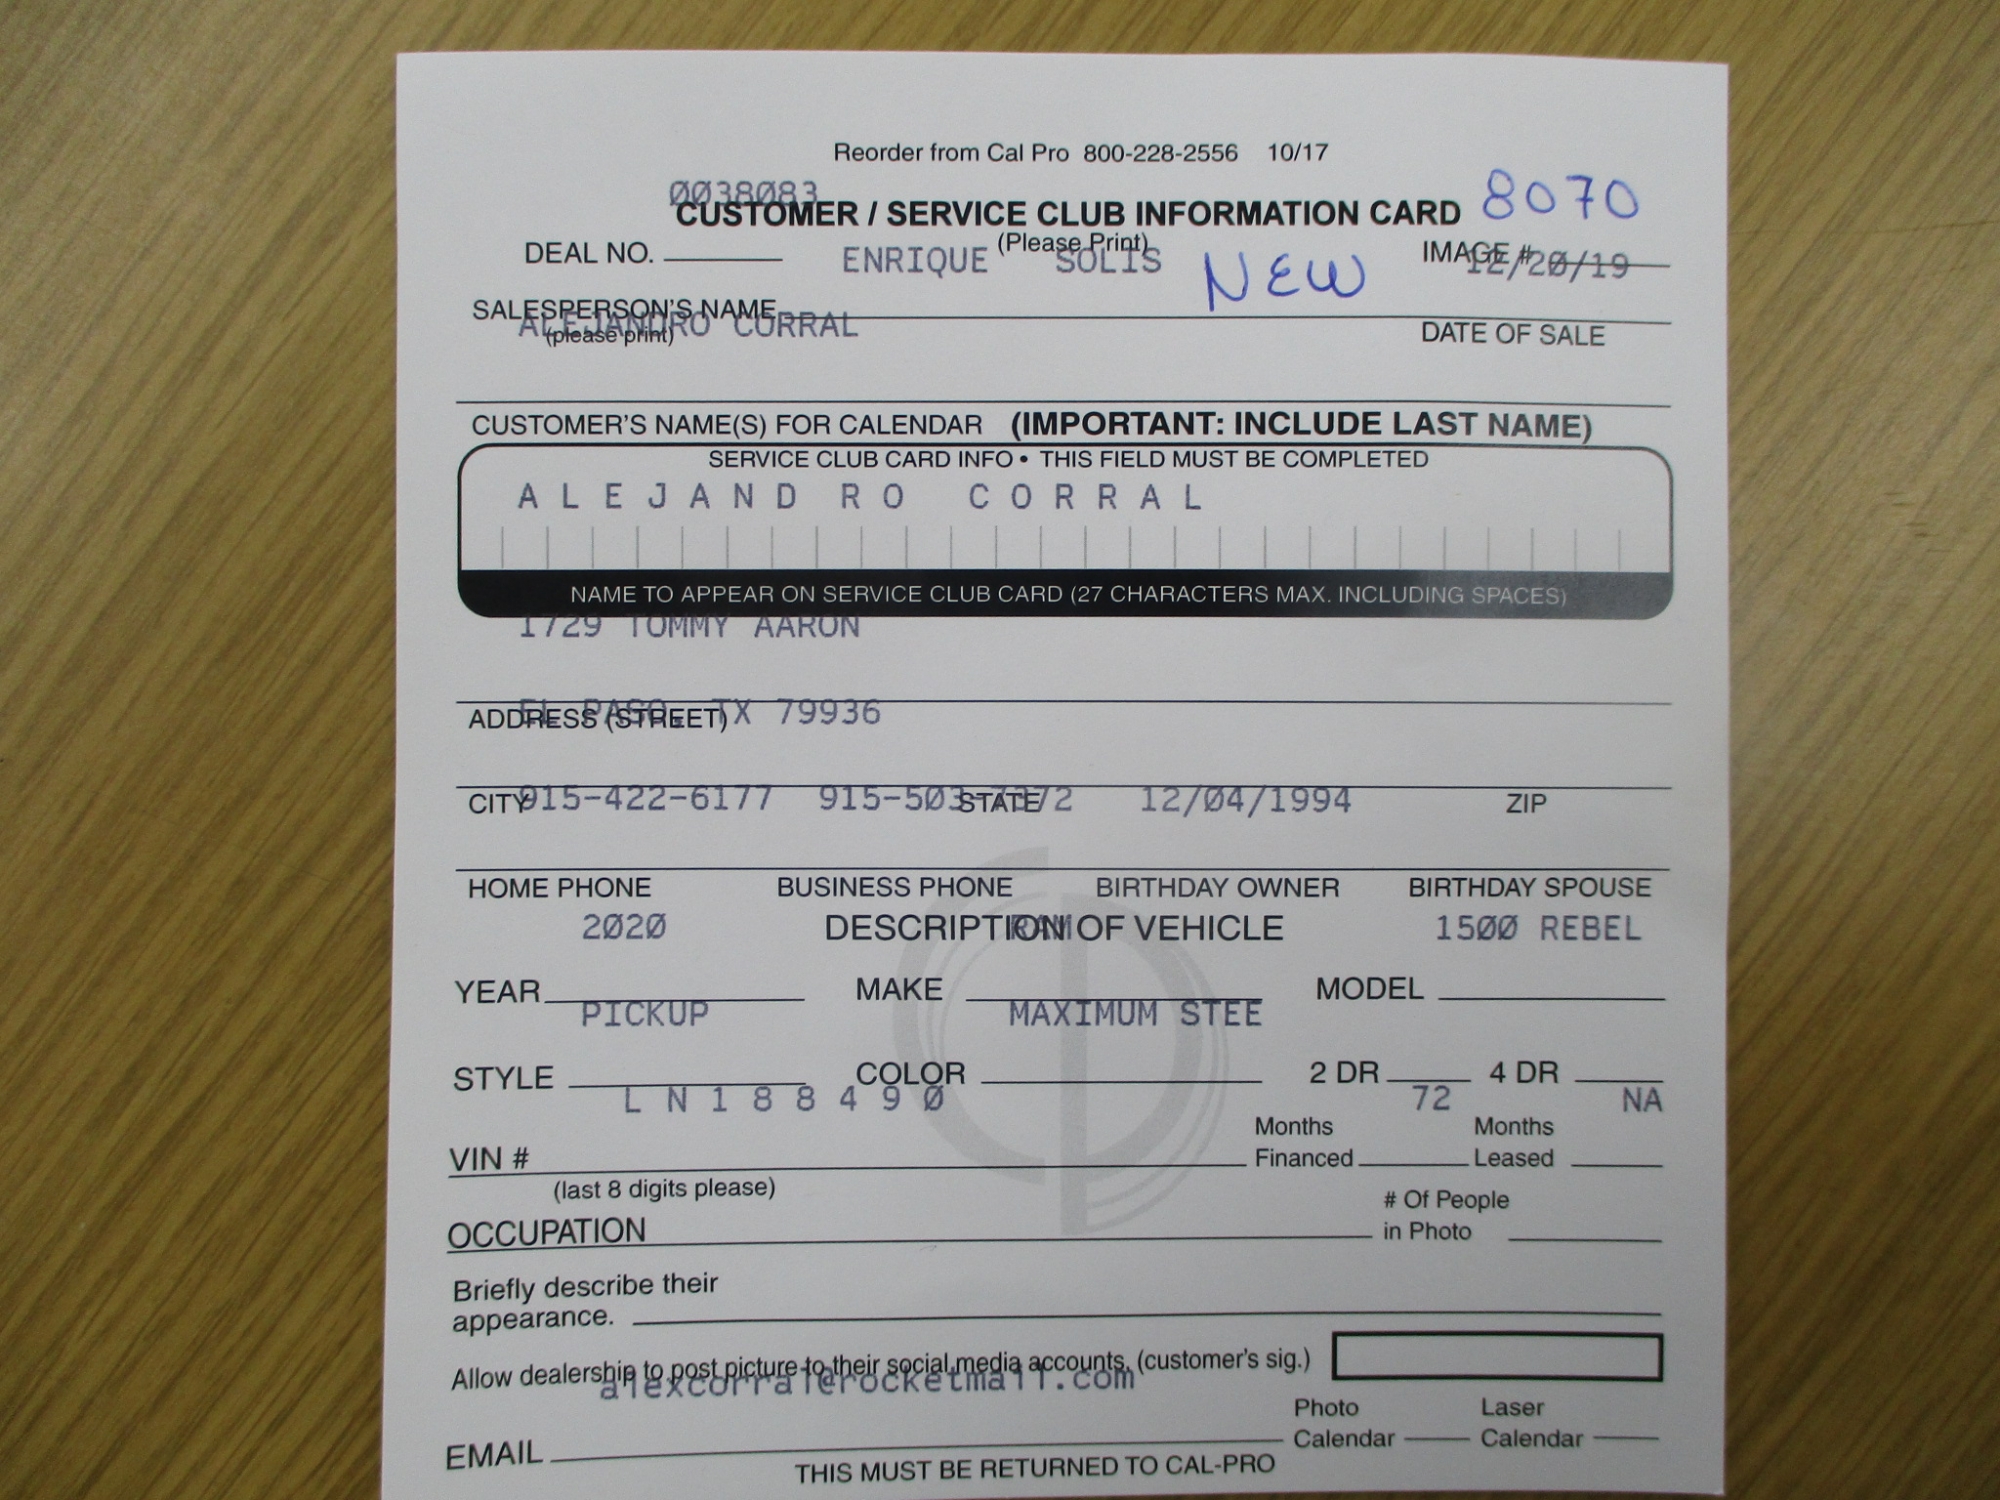 Reorder from Cal Pro 800-228-2556 10/17
0038083
CUSTOMER / SERVICE CLUB INFORMATION CARD 8070
(Please Print)
DEAL NO. ENRIQUE SOLIS NEW IMAGE # 12/20/19
SALESPERSON'S NAME
ALEJANDRO CORRAL
(please print) DATE OF SALE
CUSTOMER'S NAME(S) FOR CALENDAR (IMPORTANT: INCLUDE LAST NAME)
SERVICE CLUB CARD INFO • THIS FIELD MUST BE COMPLETED
A L E J A N D R O C O R R A L
NAME TO APPEAR ON SERVICE CLUB CARD (27 CHARACTERS MAX. INCLUDING SPACES)
1729 TOMMY AARON
EL PASO, TX 79936
ADDRESS (STREET)
915-422-6177 12/04/1994
CITY STATE ZIP
HOME PHONE BUSINESS PHONE BIRTHDAY OWNER BIRTHDAY SPOUSE
2020 RAM 1500 REBEL
DESCRIPTION OF VEHICLE
YEAR MAKE MODEL
PICKUP MAXIMUM STEE
STYLE COLOR 2 DR 4 DR
L N 1 8 8 4 9 0 72 NA
VIN # Months Financed Months Leased
(last 8 digits please)
OCCUPATION # Of People in Photo
Briefly describe their
appearance.
Allow dealership to post picture to their social media accounts, (customer's sig.)
alexcorral@rocketmail.com
EMAIL Photo Calendar Laser Calendar
THIS MUST BE RETURNED TO CAL-PRO